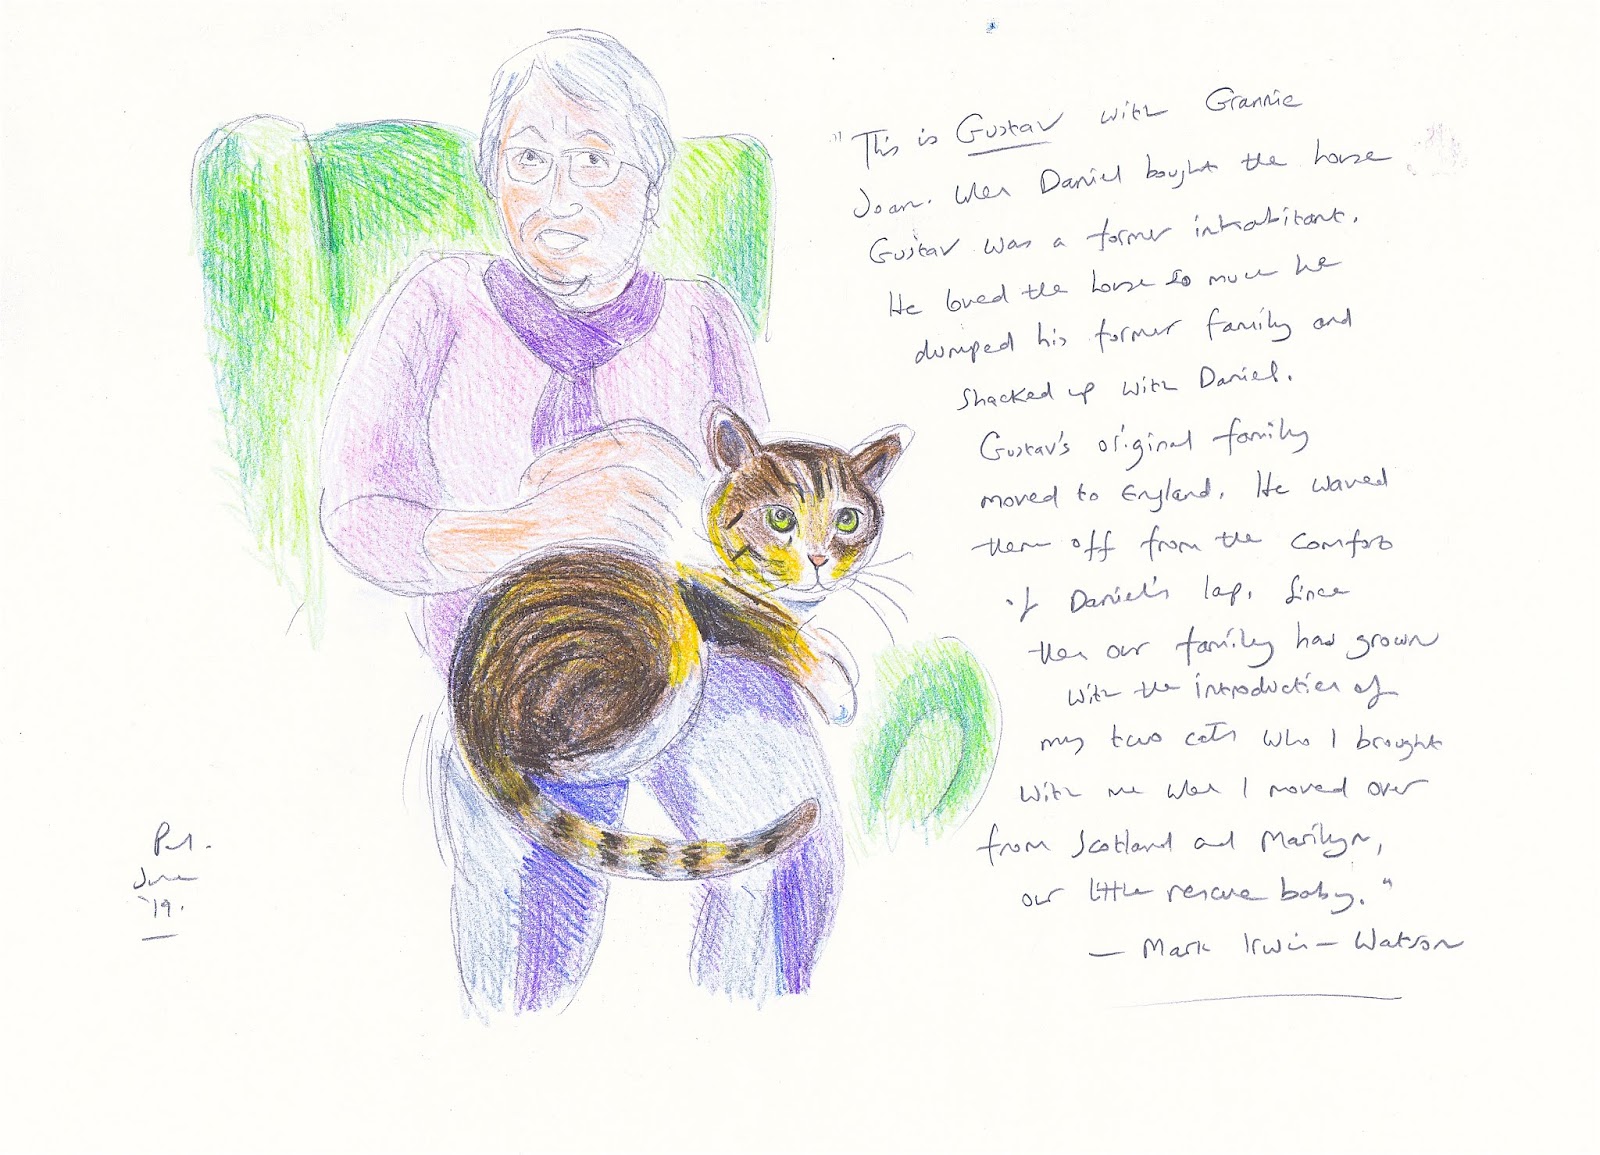 "This is Gustav with Grannie
Joan. When Daniel bought the house
Gustav was a former inhabitant.
He loved the house so much he
dumped his former family and
shacked up with Daniel.
Gustav's original family
moved to England. He waved
them off from the comfort
of Daniel's lap. Since
then our family has grown
with the introduction of
my two cats who I brought
with me when I moved over
from Scotland and Marilyn,
our little rescue baby."
— Mark Irwin-Watson
June
'19.